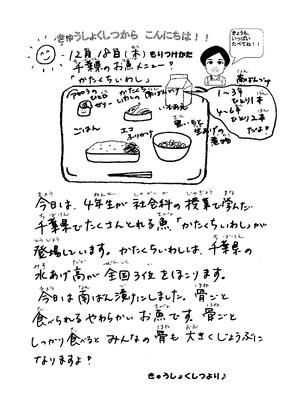 きゅうしょくしつから こんにちは!!
12月18日(木) もりつけかた
千葉県のお魚メニュー?
「かたくちいわし」
きょうも、
いっぱい
たべてね!!
南ばんづけ
1~3年
ひとり1本
4~6年
ひとり2本
だよ?
ゼリー
かたくち
いわしの
ごはん
エコ
ふりかけ
煮物
今日は、4年生が社会科の授業で学んだ
千葉県でたくさんとれる魚「かたくちいわし」が
登場しています。かたくちいわしは、千葉県の
水あげ高が全国3位をほこります。
今日は南ばん漬けにしました。骨ごと
食べられるやわらかいお魚です。骨ごと
しっかり食べるとみんなの骨も大きくじょうぶに
なりますよ?
きゅうしょくしつより♪